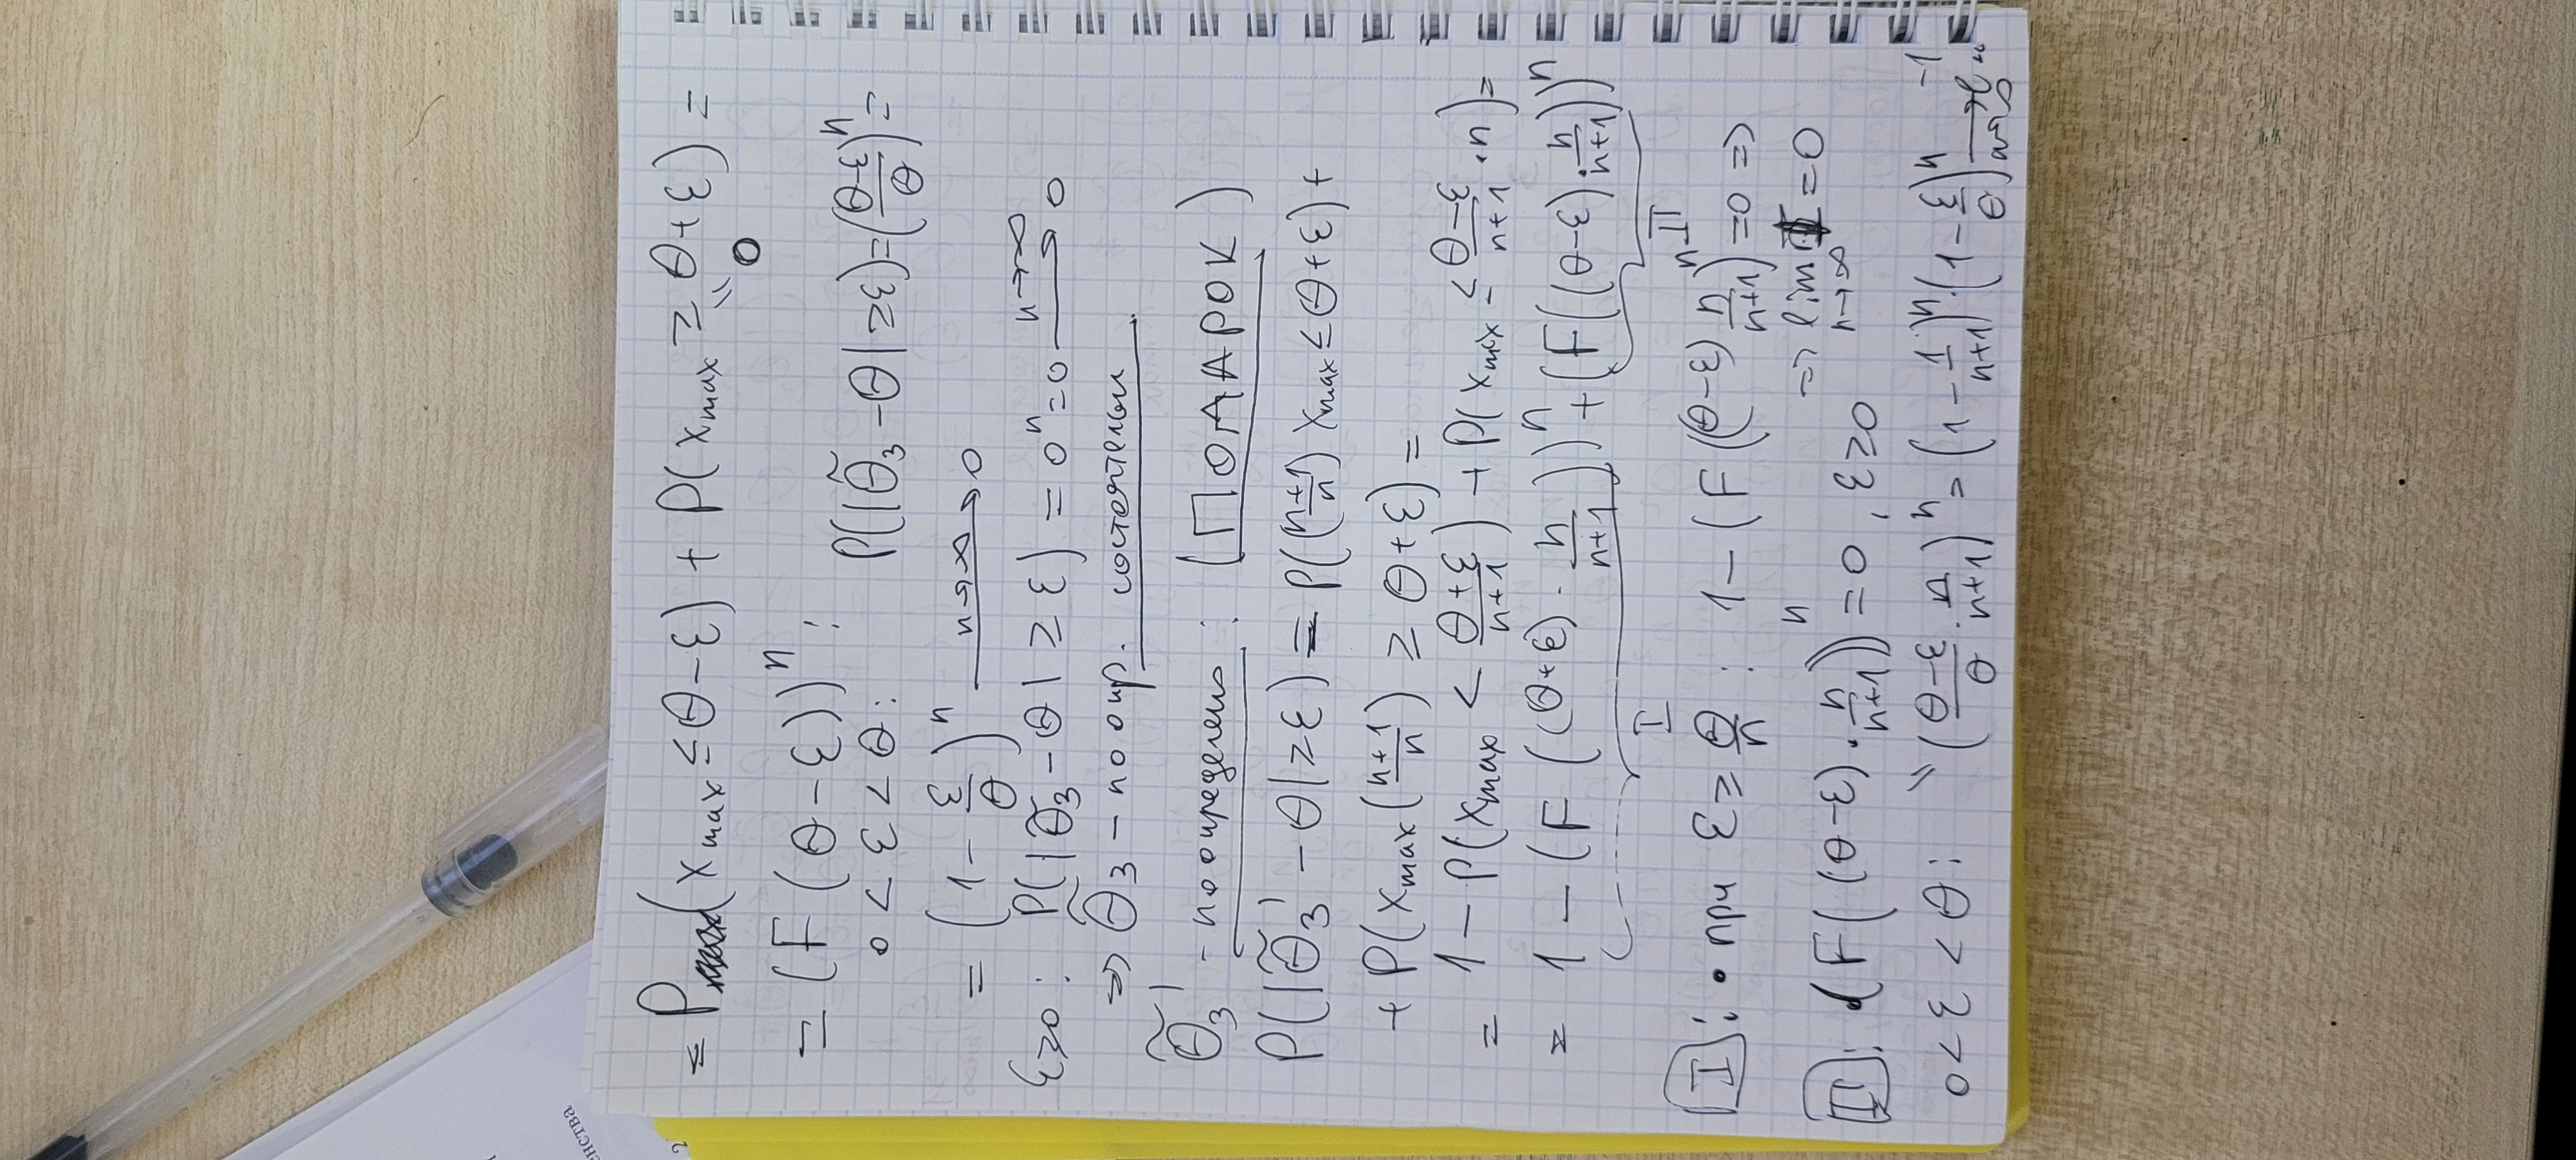 енства
2
= P(x_max ≤ θ-ε) + P(x_max ≥ θ+ε) =
" 0
= (F(θ-ε))^n :
0 < ε < θ: P(|θ̃_3 - θ| ≥ ε) = ((θ-ε)/θ)^n =
= (1 - ε/θ)^n →(n→∞) 0
ε ≥ θ: P(|θ̃_3 - θ| ≥ ε) = 0^n = 0 →(n→∞) 0
=> θ̃_3 - по опр. состоятельн.
θ̃_3' - по определению: (ПОДАРОК)
P(|θ̃_3' - θ| ≥ ε) = P((n+1)/n) x_max ≤ θ+ε) +
+ P(x_max((n+1)/n) ≥ θ+ε) =
= 1 - P(x_max < (θ+ε)/(n+1)) + P(x_max ≤ (θ-ε)/(n+1) · n) =
= 1 - (F((θ+ε) · n/(n+1)))^n + (F((θ-ε) · n/(n+1)))^n
I II
I: • при ε ≥ θ/n : 1 - (F((θ-ε) n/(n+1))^n = 0 =>
=> lim_(n→∞) I = 0
II: (F((θ-ε) · n/(n+1)))^n = 0, ε ≥ θ
0 < ε < θ: " ((θ-ε)/θ · n/(n+1))^n = (1 - 1/(n+1))^n · (1 - ε/θ)^n →(n→∞) e^-1